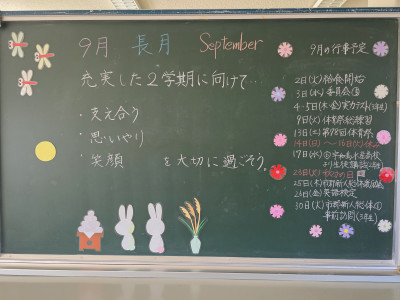 9月 長月 September
充実した2学期に向けて…
・支え合う
・思いやり
・笑顔 を大切に過ごそう。
9月の行事予定
2日(火)給食開始
3日(水)委員会⑤
4・5日(木・金)実力テスト(3年)
9日(火)体育祭総練習
13日(土)第78回体育祭
14日(日)~16日(火)休み
17日(水)
23日(火)秋分の日
25日(木)市郡新人総体激励会
26日(金)英語検定
30日(火)市郡新人総体①
事前訪問(3年生)